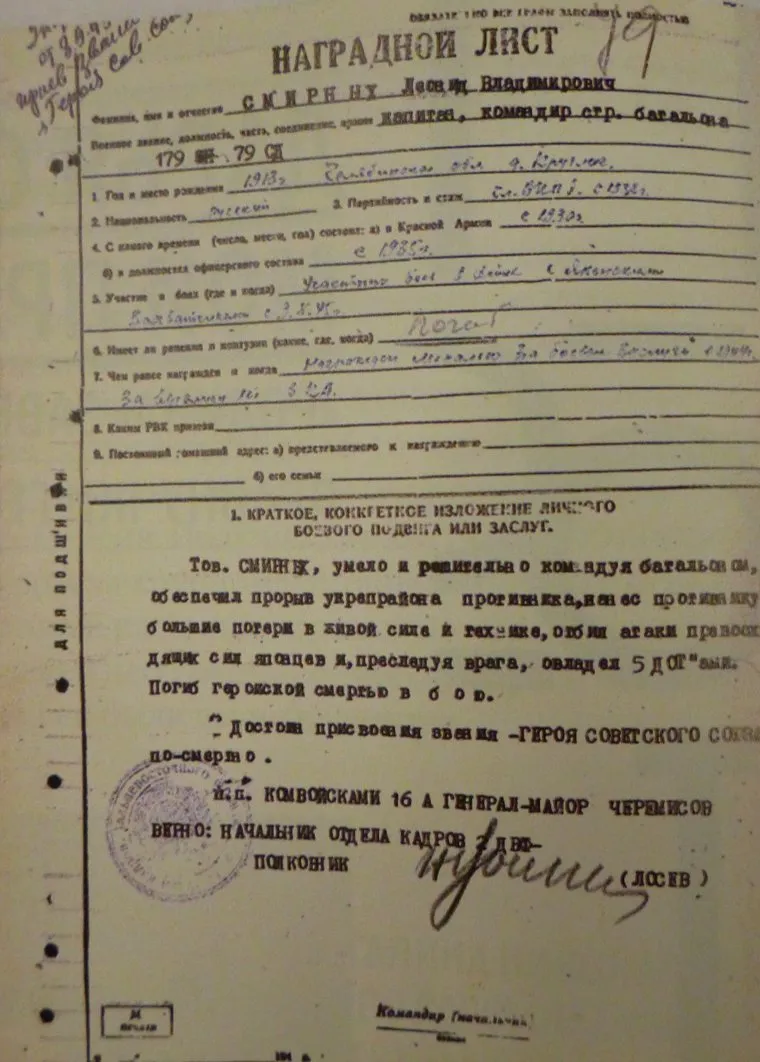 ВСЕ ГРАФЫ ЗАПОЛНЯТЬ ПОЛНОСТЬЮ
19
от 8.9.45
Героя Сов. Сою
НАГРАДНОЙ ЛИСТ
Фамилия, имя и отчество СМИРНЫХ Леонид Владимирович
Военное звание, должность, часть, соединение, армия капитан, командир стр. батальона
179 СП. 79 СД
1. Год и место рождения 1913г Челябинская обл д. Круглое.
2. Национальность русский 3. Партийность и стаж чл. ВКП с 1938г.
4. С какого времени (число, месяц, год) состоит: а) в Красной Армии с 1930г
б) в должностях офицерского состава с 1935г.
5. Участие в боях (где и когда) Участник боев в войне с Японскими
захватчиками с 45г.
6. Имеет ли ранения и контузии (какие, где, когда) Погиб
7. Чем ранее награжден и когда Награжден медалью За боевые Заслуги в 1944г.
За выслугу лет в КА.
8. Каким РВК призван
9. Постоянный домашний адрес: а) представляемого к награждению
б) его семьи
1. КРАТКОЕ, КОНКРЕТНОЕ ИЗЛОЖЕНИЕ ЛИЧНОГО
БОЕВОГО ПОДВИГА ИЛИ ЗАСЛУГ.
Тов. СМИРНЫХ, умело и решительно командуя батальоном,
обеспечил прорыв укрепрайона противника, нанес противнику
большие потери в живой силе и технике, отбил атаки превосхо
дящих сил японцев и, преследуя врага, овладел 5 ДОТ"ами.
Погиб геройской смертью в бою.
Достоин присвоения звания -ГЕРОЯ СОВЕТСКОГО СОЮЗА
по-смертно.
п.п. КОМВОЙСКАМИ 16 А ГЕНЕРАЛ-МАЙОР ЧЕРЕМИСОВ
ВЕРНО: НАЧАЛЬНИК ОТДЕЛА КАДРОВ 2 ДВФ-
ПОЛКОВНИК (ЛОСЕВ)
для подшивки
М
печати
Командир (начальник)
194 г.